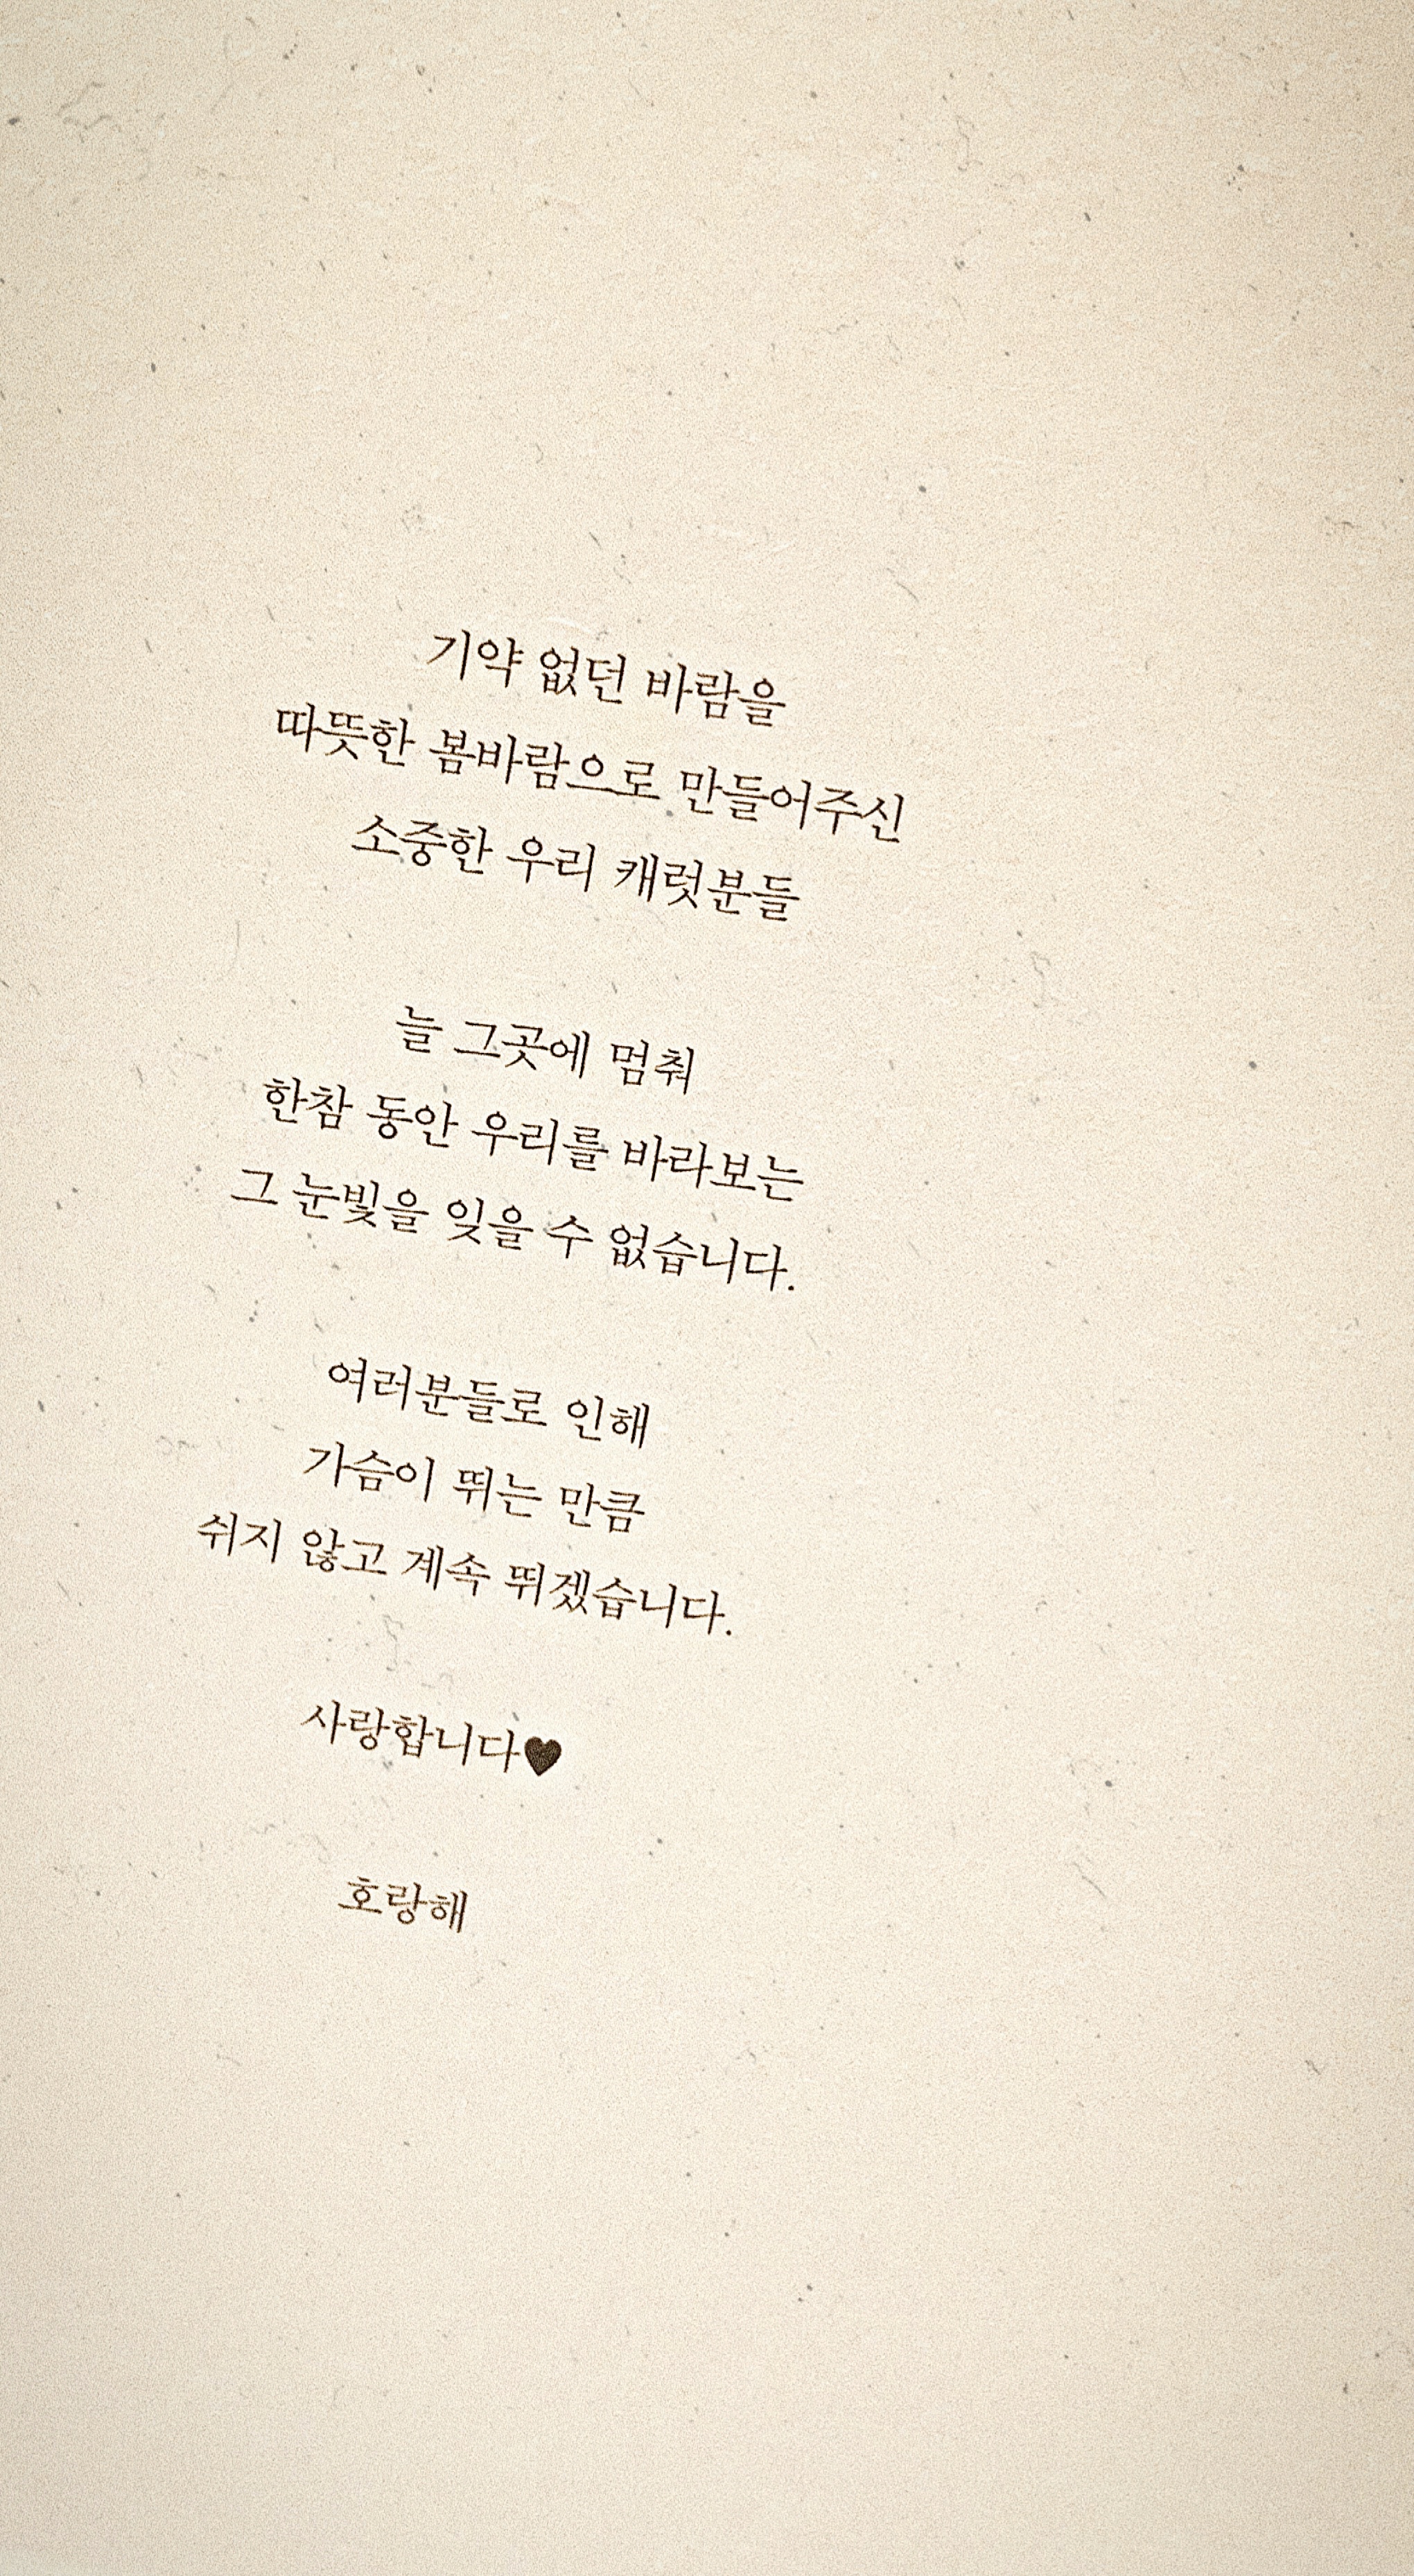 기약 없던 바람을
따뜻한 봄바람으로 만들어주신
소중한 우리 캐럿분들
늘 그곳에 멈춰
한참 동안 우리를 바라보는
그 눈빛을 잊을 수 없습니다.
여러분들로 인해
가슴이 뛰는 만큼
쉬지 않고 계속 뛰겠습니다.
사랑합니다♥
호랑해